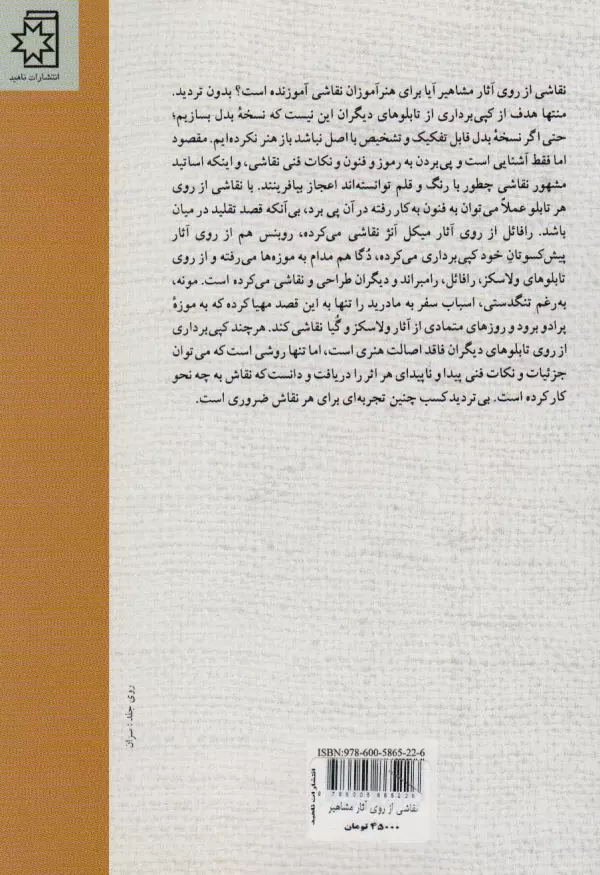 انتشارات ناهید
نقاشی از روی آثار مشاهیر آیا برای هنرآموزان نقاشی آموزنده است؟ بدون تردید.
منتها هدف از کپی‌برداری از تابلوهای دیگران این نیست که نسخهٔ بدل بسازیم؛
حتی اگر نسخهٔ بدل قابل تفکیک و تشخیص با اصل نباشد باز هنر نکرده‌ایم. مقصود
اما فقط آشنایی است و پی‌بردن به رموز و فنون و نکات فنی نقاشی، و اینکه اساتید
مشهور نقاشی چطور با رنگ و قلم توانسته‌اند اعجاز بیافرینند. با نقاشی از روی
هر تابلو عملاً می‌توان به فنون به‌کار رفته در آن پی برد، بی‌آنکه قصد تقلید در میان
باشد. رافائل از روی آثار میکل آنژ نقاشی می‌کرده، روبنس هم از روی آثار
پیش‌کسوتانِ خود کپی‌برداری می‌کرده، دُگا هم مدام به موزه‌ها می‌رفته و از روی
تابلوهای ولاسکز، رافائل، رامبراند و دیگران طراحی و نقاشی می‌کرده است. مونه،
به‌رغم تنگدستی، اسباب سفر به مادرید را تنها به این قصد مهیا کرده که به موزهٔ
پرادو برود و روزهای متمادی از آثار ولاسکز و گُیا نقاشی کند. هرچند کپی‌برداری
از روی تابلوهای دیگران فاقد اصالت هنری است، اما تنها روشی است که می‌توان
جزئیات و نکات فنی پیدا و ناپیدای هر اثر را دریافت و دانست که نقاش به چه نحو
کار کرده است. بی‌تردید کسب چنین تجربه‌ای برای هر نقاش ضروری است.
روی جلد : سزان
ISBN:978-600-5865-22-6
انتشارات ناهید
9 786005 865226
نقاشی از روی آثار مشاهیر
۴۵۰۰۰ تومان